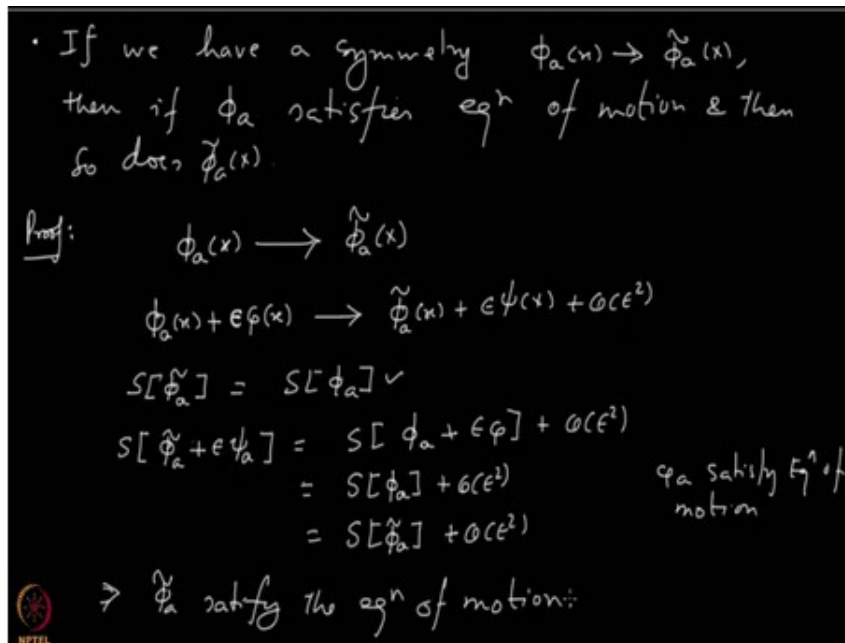 • If we have a symmetry ϕₐ(x) → ϕ̃ₐ(x),
then if ϕₐ satisfies eqⁿ of motion & then
so does ϕ̃ₐ(x).
Proof: ϕₐ(x) ⟶ ϕ̃ₐ(x)
ϕₐ(x) + ϵφ(x) ⟶ ϕ̃ₐ(x) + ϵψ(x) + O(ϵ²)
S[ϕ̃ₐ] = S[ϕₐ] ✓
S[ϕ̃ₐ + ϵψₐ] = S[ϕₐ + ϵφ] + O(ϵ²)
= S[ϕₐ] + O(ϵ²) φₐ satisfy Eqⁿ of
motion
= S[ϕ̃ₐ] + O(ϵ²)
⇒ ϕ̃ₐ satisfy the eqⁿ of motion÷
NPTEL